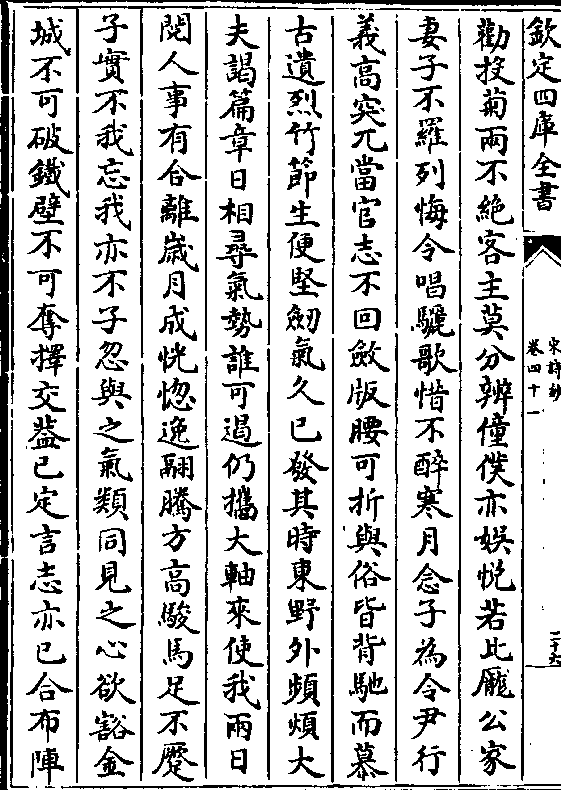 欽定四庫全書
宋詩鈔
卷四十一
二十六
勸投菊兩不絶客主莫分辨僮僕亦娯悅若比龎公家
妻子不羅列悔令唱驪歌惜不醉寒月念子為令尹行
義髙突兀當官志不回斂版腰可折與俗皆背馳而慕
古遺烈竹節生便堅劒氣久已發其時東野外頻煩大
夫謁篇章日相尋氣勢誰可遏仍攜大軸來使我兩日
閱人事有合離嵗月成恍惚逸翮騰方髙駿馬足不蹷
子實不我忘我亦不子忽與之氣類同見之心欲豁金
城不可破鐵壁不可奪擇交葢已定言志亦已合布陣